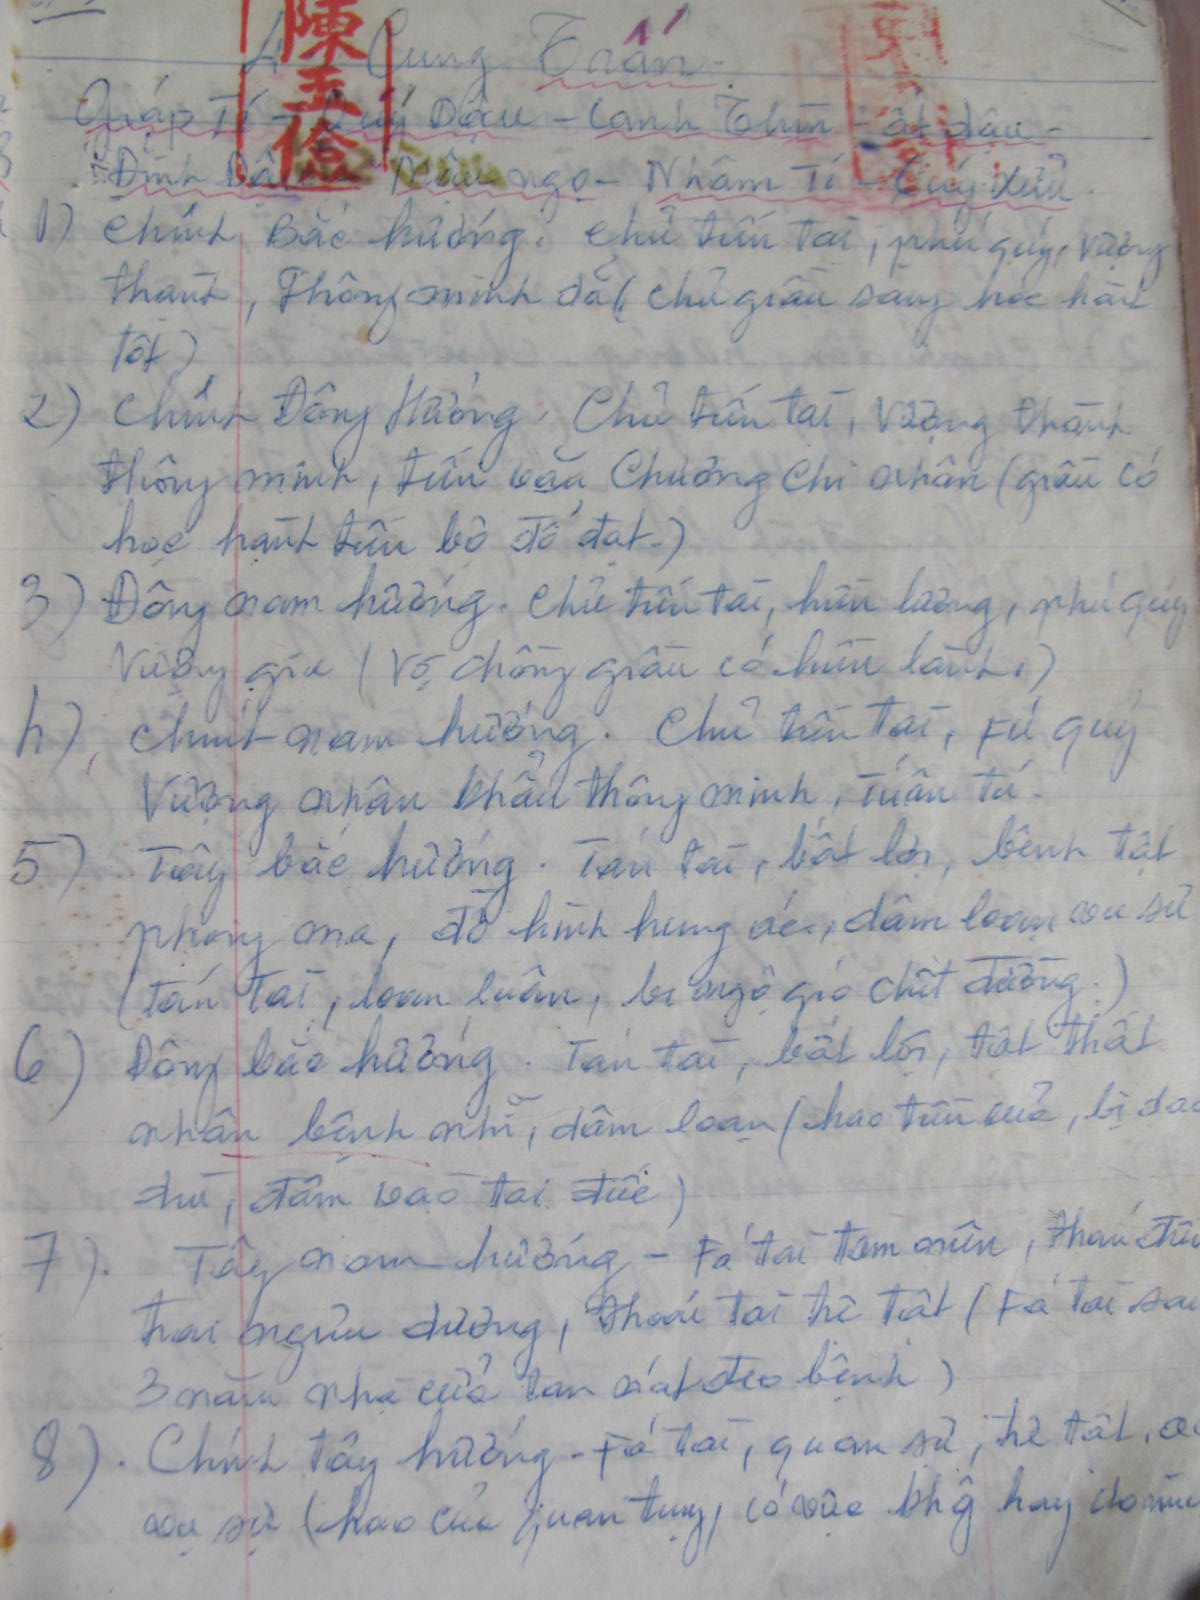 Cung Trấn
陳玉儉
Giáp Tí - Quý Dậu - Canh Thìn - ất dậu -
Đinh Dậu - Mậu ngọ - Nhâm Tí - Quý Xửu.
1) Chính Bắc hướng. Chủ tiến tài, phú quý, vượng
thành, Thông minh đa( chủ giầu sang học hành
tốt)
2) Chính Đông Hướng. Chủ tiến tài, Vượng thành
thông minh, tiến văn Chương Chi nhân (giầu có
học hành tiến bộ đổ đạt.)
3) Đông nam hướng. Chủ tiến tài, hiền lương, phú quý
Vượng gia (Vợ chồng giầu có hiền lành.)
4), Chính nam hướng. Chủ tiến tài, Fú quý
Vượng nhân khẩu thông minh, Tuấn tú.
5) Tây bắc hướng. Tán tài, bất lợi, bệnh tật
phong ma, đồ hình hung ác, dâm loạn sự
(tán tài, loạn luân, bị ngộ gió chết đường.)
6) Đông bắc hướng. Tán tài, bất lợi, tật thất
nhân bệnh nhĩ, dâm loạn (hao tiền của, bị
đâm vào tai điếc)
7). Tây nam hướng - Fá tài tam niên, thoái
trại ngưu dương, thoái tài tê tật (Fá tài sau
3 năm nhà cửa tan nát đeo bệnh)
8). Chính tây hướng - Fá tài, quan sự, tê tật,
sự (hao của quan tụng, có việc hay